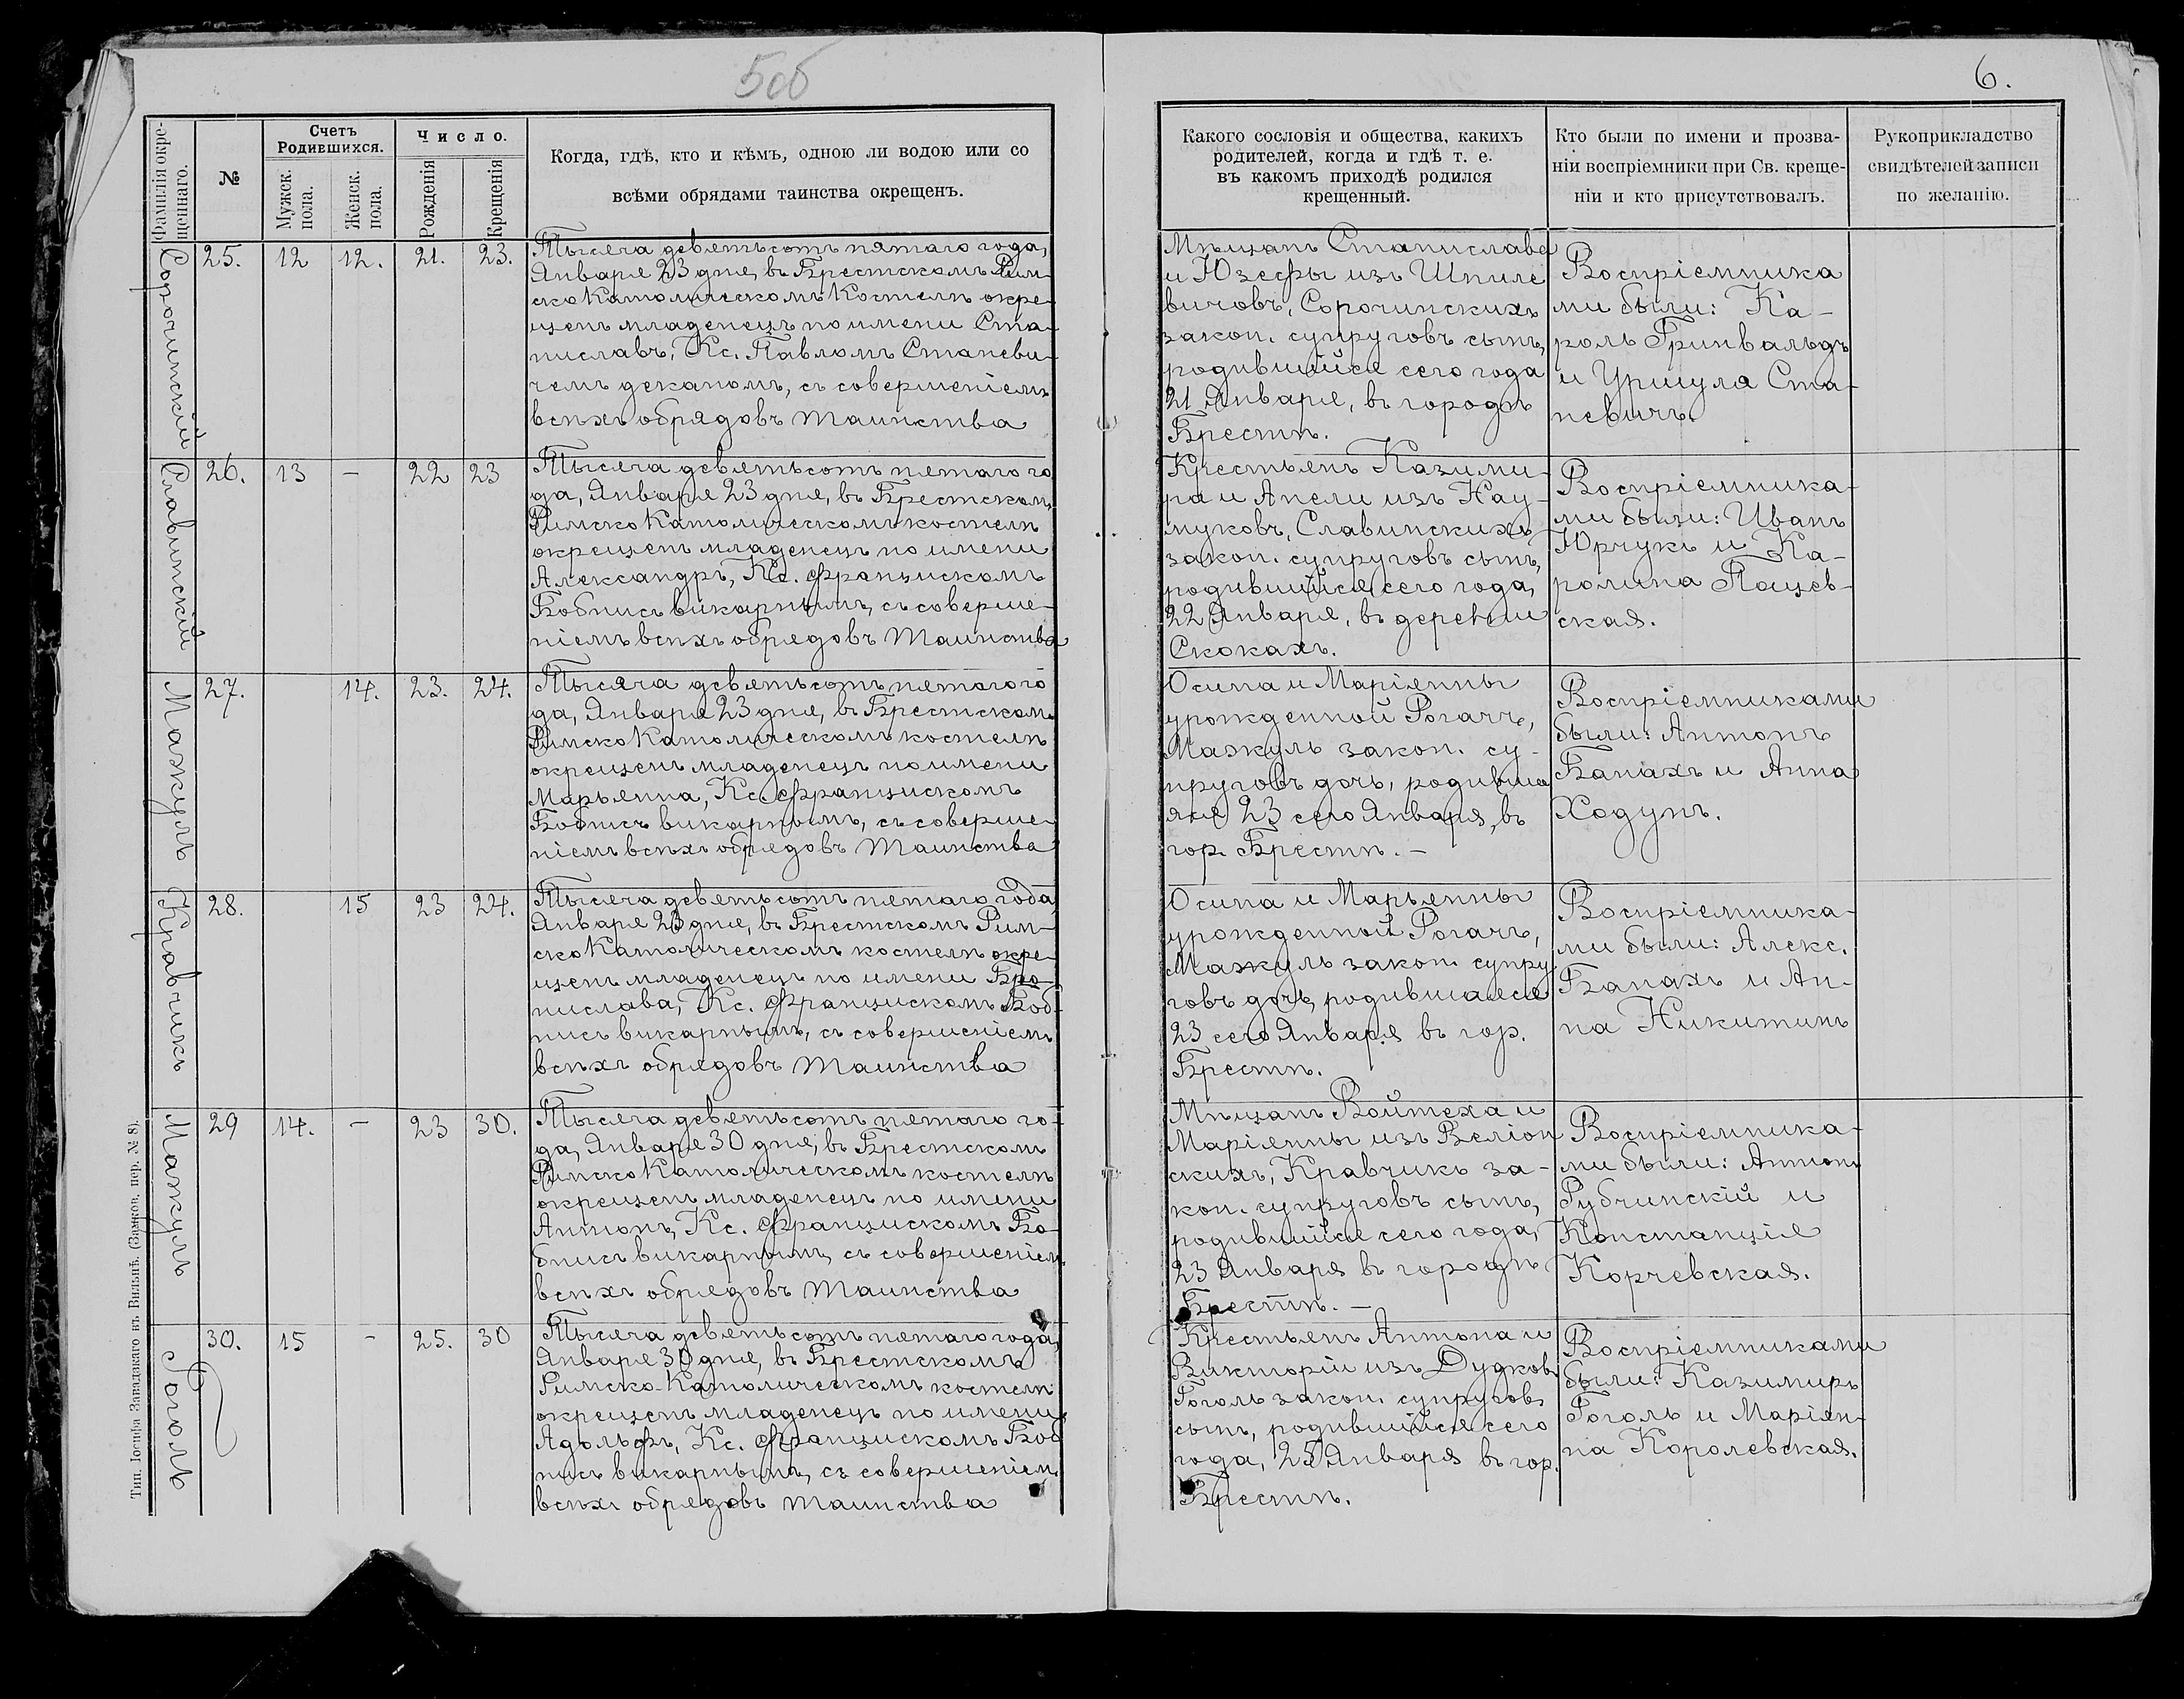 5об
6.
Фамилія окре-
щеннаго.
№
Счетъ
Родившихся.
Мужск.
пола.
Женск.
пола.
Число.
Рожденія
Крещенія
Когда, гдѣ, кто и кѣмъ, одною ли водою или со
всѣми обрядами таинства окрещенъ.
Какого сословія и общества, какихъ
родителей, когда и гдѣ т. е.
въ какомъ приходѣ родился
крещенный.
Кто были по имени и прозва-
ніи воспріемники при Св. креще-
ніи и кто присутствовалъ.
Рукоприкладство
свидѣтелей записи
по желанію.
Сорочинскій
25. 12 12. 21. 23.
Тысяча девятьсотъ пятаго года,
Января 23 дня, въ Брестскомъ Рим-
ско Католическомъ Костелѣ окре-
щенъ младенецъ по имени Ста-
ниславъ, Кс. Павломъ Станеви-
чемъ деканомъ, съ совершеніемъ
всѣхъ обрядовъ таинства
Мѣщанъ Станислава
и Юзефы изъ Шпиле
вичовъ, Сорочинскихъ
закон. супруговъ сынъ,
родившійся сего года
21 Января, въ городѣ
Брестѣ.
Воспріемника
ми были: Ка-
роль Гринвальдъ
и Уршуля Ста-
невичъ.
Славинскій
26. 13 — 22 23
Тысяча девятьсотъ пятаго го
да, Января 23 дня, въ Брестскомъ
Римско Католическомъ костелѣ
окрещенъ младенецъ по имени
Александръ, Кс. Францискомъ
Бобнисъ викарнымъ, съ соверше-
ніемъ всѣхъ обрядовъ таинства
Крестьянъ Казими-
ра и Анели изъ Нау-
муковъ, Славинскихъ
закон. супруговъ сынъ,
родившійся сего года,
22 Января, въ деревни
Скокахъ.
Воспріемника-
ми были: Иванъ
Юрчукъ и Ка-
ролина Пацев-
ская.
Мажуль
27. 14. 23. 24.
Тысяча девятьсотъ пятаго го
да, Января 23 дня, въ Брестскомъ
Римско Католическомъ костелѣ
окрещенъ младенецъ по имени
Марьянна, Кс. Францискомъ
Бобнисъ викарнымъ, съ соверше-
ніемъ всѣхъ обрядовъ таинства
Осипа и Маріянны
урожденной Рогачъ,
Мажуль закон. су-
пруговъ дочь, родивша
яся 23 сего Января, въ
гор. Брестѣ. —
Воспріемниками
были: Антонъ
Банахъ и Анна
Ходунъ.
Кравчикъ
28. 15 23 24.
Тысяча девятьсотъ пятаго года,
Января 23 дня, въ Брестскомъ Рим-
ско Католическомъ костелѣ окре-
щенъ младенецъ по имени Бро-
нислава, Кс. Францискомъ Боб-
нисъ викарнымъ, съ совершеніемъ
всѣхъ обрядовъ таинства
Осипа и Марьянны
урожденной Рогачъ,
Мажуль закон. супру
говъ дочь, родившаяся
23 сего Января въ гор.
Брестѣ.
Воспріемника-
ми были: Алекс.
Банахъ и Ан-
на Никитинъ
Мажуль
29 14. — 23 30.
Тысяча девятьсотъ пятаго го-
да, Января 30 дня, въ Брестскомъ
Римско Католическомъ костелѣ
окрещенъ младенецъ по имени
Антонъ, Кс. Францискомъ Бо-
бнисъ викарнымъ, съ совершеніемъ
всѣхъ обрядовъ таинства
Мѣщанъ Войтеха и
Маріянны изъ Веліон
скихъ, Кравчикъ за-
кон. супруговъ сынъ,
родившійся сего года,
23 Января въ городѣ
Брестѣ. —
Воспріемника-
ми были: Антонъ
Рубчинскій и
Констанція
Корчевская.
Гоголь
30. 15 - 25. 30
Тысяча девятьсотъ пятаго года,
Января 30 дня, въ Брестскомъ
Римско-Католическомъ костелѣ
окрещенъ младенецъ по имени
Адольфъ, Кс. Францискомъ Боб
нисъ викарнымъ, съ совершеніемъ
всѣхъ обрядовъ таинства
Крестьянъ Антона и
Викторіи изъ Дудковъ
Гоголь закон. супруговъ
сынъ, родившійся сего
года, 25 Января въ гор.
Брестѣ.
Воспріемниками
были: Казимиръ
Гоголь и Маріян-
на Королевская.
Тип. Іосифа Завадзкаго въ Вильнѣ. (Замков. пер. № 8).